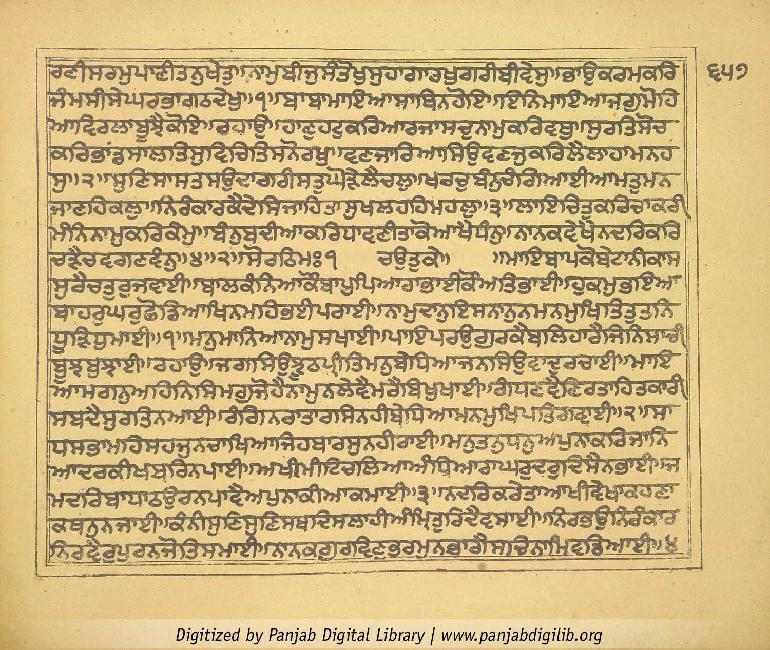 ਰਣੀਸਰਮੁਪਾਣੀਤਨੁਖੇਤੁ॥ਨਾਮੁਬੀਜੁਸੰਤੋਖੁਸੁਹਾਗਾਰਖੁਗਰੀਬੀਵੇਸੁ॥ਭਾਉਕਰਮਕਰਿ
੬੫੭
ਜੰਮਸੀਸੇਘਰਭਾਗਠਦੇਖੁ॥੧॥ਬਾਬਾਮਾਇਆਸਾਥਿਨਹੋਇ॥ਇਨਿਮਾਇਆਜਗੁਮੋਹਿ
ਆਵਿਰਲਾਬੂਝੈਕੋਇ॥ਰਹਾਉ॥ਹਾਣੁਹਟੁਕਰਿਆਰਜਾਸਚੁਨਾਮੁਕਰਿਵਥੁ॥ਸੁਰਤਿਸੋਚ
ਕਰਿਭਾਂਡਸਾਲਤਿਸੁਵਿਚਿਤਿਸਨੋਰਖੁ॥ਵਣਜਾਰਿਆਸਿਉਵਣਜੁਕਰਿਲੈਲਾਹਾਮਨਹ
ਸੁ॥੨॥ਸੁਣਿਸਾਸਤਸਉਦਾਗਰੀਸਤੁਘੋੜੇਲੈਚਲੁ॥ਖਰਚੁਬੰਨੁਚੰਗਿਆਈਆਮਤੁਮਨ
ਜਾਣਹਿਕਲੁ॥ਨਿਰੰਕਾਰਕੈਦੇਸਿਜਾਹਿਤਾਸੁਖਲਹਹਿਮਹਲੁ॥੩॥ਲਾਇਚਿਤੁਕਰਿਚਾਕਰੀ
ਮੰਨਿਨਾਮੁਕਰਿਕੰਮੁ॥ਬੰਨੁਬਦੀਆਕਰਿਧਾਵਣੀਤਾਕੋਆਖੈਧੰਨੁ॥ਨਾਨਕਵੇਖੈਨਦਰਿਕਰਿ
ਚੜੈਚਵਗਣਵੰਨੁ॥੪॥੨॥ਸੋਰਠਿਮਃ੧ ਚਉਤੁਕੇ॥ ॥ਮਾਇਬਾਪਕੋਬੇਟਾਨੀਕਾਸ
ਸੁਰੈਚਤੁਰੁਜਵਾਈ॥ਬਾਲਕੰਨਿਆਕੌਬਾਪੁਪਿਆਰਾਭਾਈਕੌਅਤਿਭਾਈ॥ਹੁਕਮੁਭਇਆ
ਬਾਹਰੁਘਰੁਛੋਡਿਆਖਿਨਮਹਿਭਈਪਰਾਈ॥ਨਾਮੁਦਾਨੁਇਸਨਾਨੁਨਮਨਮੁਖਿਤਿਤੁਤਨਿ
ਧੂੜਿਧੁਮਾਈ॥੧॥ਮਨੁਮਾਨਿਆਨਾਮੁਸਖਾਈ॥ਪਾਇਪਰਉਗੁਰਕੈਬਲਿਹਾਰੈਜਿਨਿਸਾਚੀ
ਬੂਝਬੁਝਾਈ॥ਰਹਾਉ॥ਜਗਸਿਉਝੂਠਪ੍ਰੀਤਿਮਨੁਬੇਧਿਆਜਨਸਿਉਵਾਦੁਰਚਾਈ॥ਮਾਇ
ਆਮਗਨੁਅਹਿਨਿਸਿਮਗੁਜੋਹੈਨਾਮੁਨਲੇਵੈਮਰੈਬਿਖੁਖਾਈ॥ਗੰਧਣਵੈਣਿਰਤਾਹਿਤਕਾਰੀ
ਸਬਦੈਸੁਰਤਿਨਆਈ॥ਰੰਗਿਨਰਾਤਾਰਸਿਨਹੀਬੇਧਿਆਮਨਮੁਖਿਪਤਿਗਵਾਈ॥੨॥ਸਾ
ਧਸਭਾਮਹਿਸਹਜੁਨਚਾਖਿਆਜਿਹਬਾਰਸੁਨਹੀਰਾਈ॥ਮਨੁਤਨੁਧਨੁਅਪੁਨਾਕਰਿਜਾਨਿ
ਆਦਰਕੀਖਬਰਿਨਪਾਈ॥ਅਖੀਮੀਟਿਚਲਿਆਅੰਧਿਆਰਾਘਰੁਦਰੁਦਿਸੈਨਭਾਈ॥ਜ
ਮਦਰਿਬਾਧਾਠਉਰਨਪਾਵੈਅਪੁਨਾਕੀਆਕਮਾਈ॥੩॥ਨਦਰਿਕਰੇਤਾਅਖੀਵੇਖਾਕਹਣਾ
ਕਥਨੁਨਜਾਈ॥ਕੰਨੀਸੁਣਿਸੁਣਿਸਬਦਿਸਲਾਹੀਅੰਮ੍ਰਿਤੁਰਿਦੈਵਸਾਈ॥ਨਿਰਭਉਨਿਰੰਕਾਰ
ਨਿਰਵੈਰੁਪੂਰਨਜੋਤਿਸਮਾਈ॥ਨਾਨਕਗੁਰਵਿਣੁਭਰਮੁਨਭਾਗੈਸਚਿਨਾਮਿਵਡਿਆਈ॥੪
Digitized by Panjab Digital Library | www.panjabdigilib.org